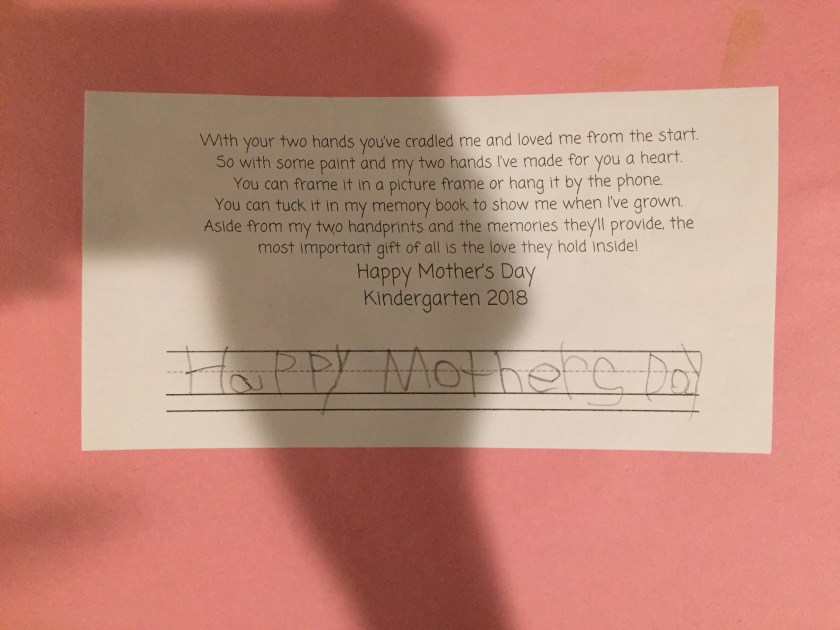 With your two hands you've cradled me and loved me from the start.
So with some paint and my two hands I've made for you a heart.
You can frame it in a picture frame or hang it by the phone.
You can tuck it in my memory book to show me when I've grown.
Aside from my two handprints and the memories they'll provide, the
most important gift of all is the love they hold inside!
Happy Mother's Day
Kindergarten 2018
HaPPy Mothers Day